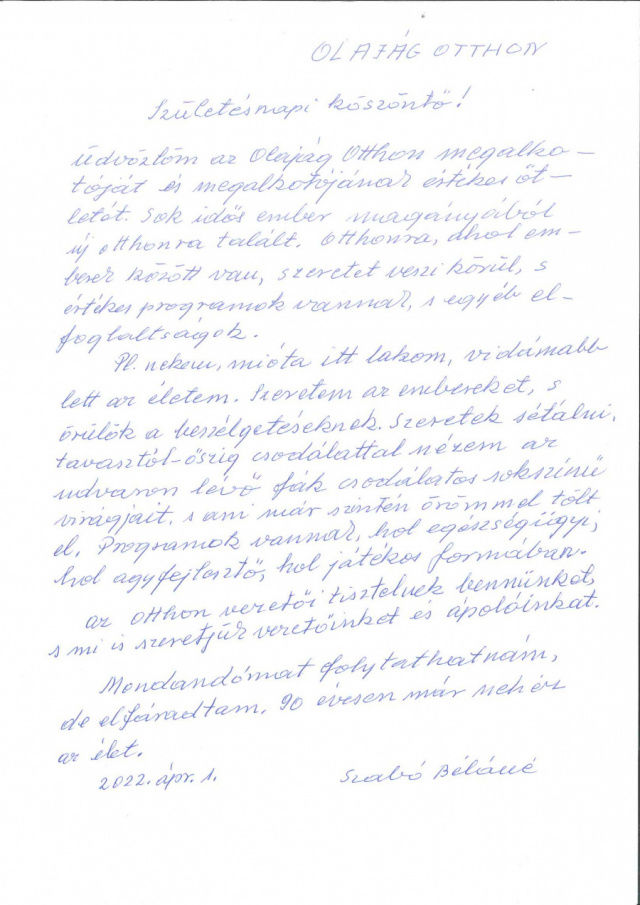 OLAJÁG OTTHON
Születésnapi köszöntő!
Üdvözlöm az Olajág Otthon megalko-
tóját és megalkotójának értékes öt-
letét. Sok idős ember magányából
új otthonra talált. Otthonra, ahol em-
berek között van, szeretet veszi körül, s
értékes programok vannak, s egyéb el-
foglaltságok.
Pl. nekem, mióta itt lakom, vidámabb
lett az életem. Szeretem az embereket, s
örülök a beszélgetéseknek. Szeretek sétálni,
tavasztól-őszig csodálattal nézem az
udvaron lévő fák csodálatos sokszínű
virágjait, s ami már szintén örömmel tölt
el. Programok vannak, hol egészségügyi,
hol agyfejlesztő, hol játékos formában.
Az Otthon vezetői tisztelnek bennünket,
s mi is szeretjük vezetőinket és ápolóinkat.
Mondandómat folytathatnám,
de elfáradtam. 90 évesen már nehéz
az élet.
2022. ápr. 1. Szabó Béláné